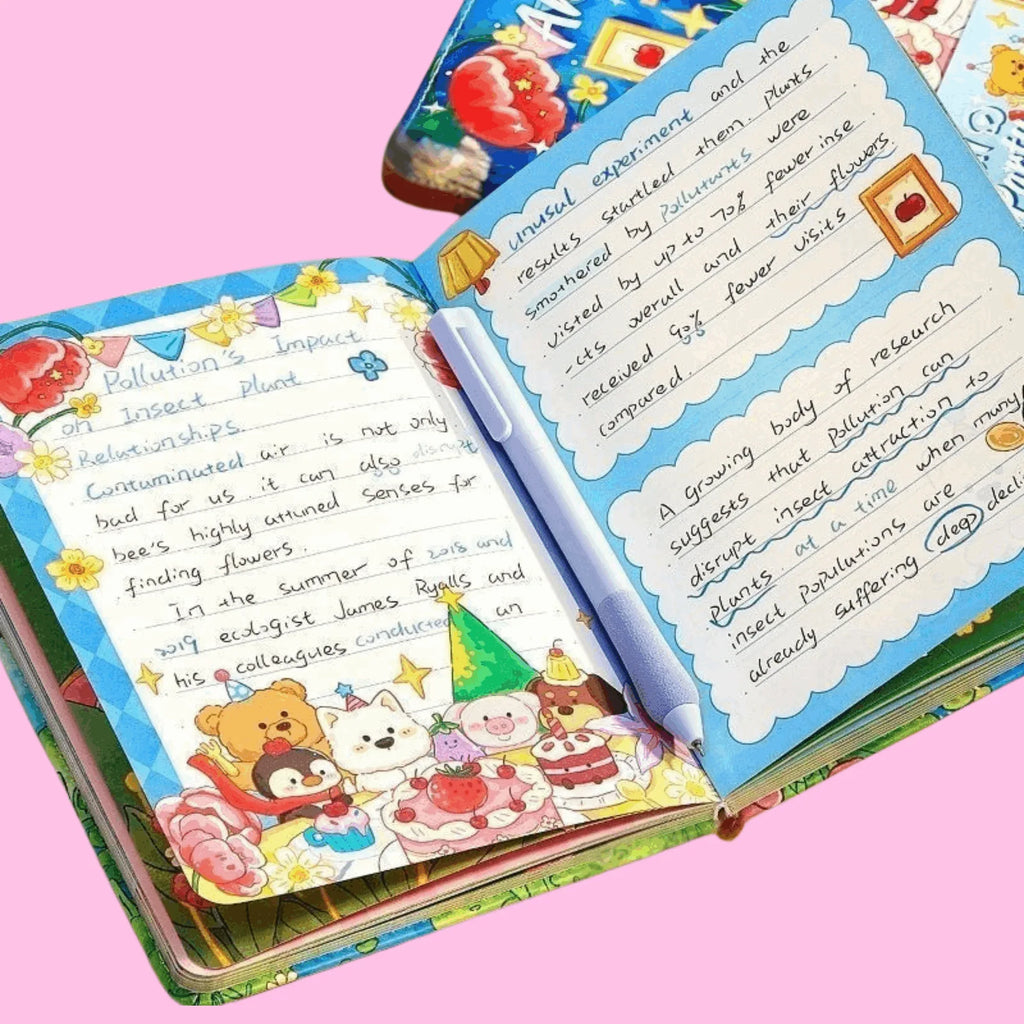 Pollution's Impact
on Insect plant
Relationships.
Contaminated air is not only
bad for us. it can also disrupt
bee's highly attuned senses for
finding flowers.
In the summer of 2018 and
2019 ecologist James Ryalls and
his colleagues conducted an
unusual experiment and the
results startled them. Plants
smothered by Pollutants were
visted by up to 70% fewer inse
-cts overall and their flowers.
received 90% fewer visits
compared.
A growing body of research
suggests that Pollution can
disrupt insect attraction to
plants at a time when many
insect populations are
already suffering deep decli